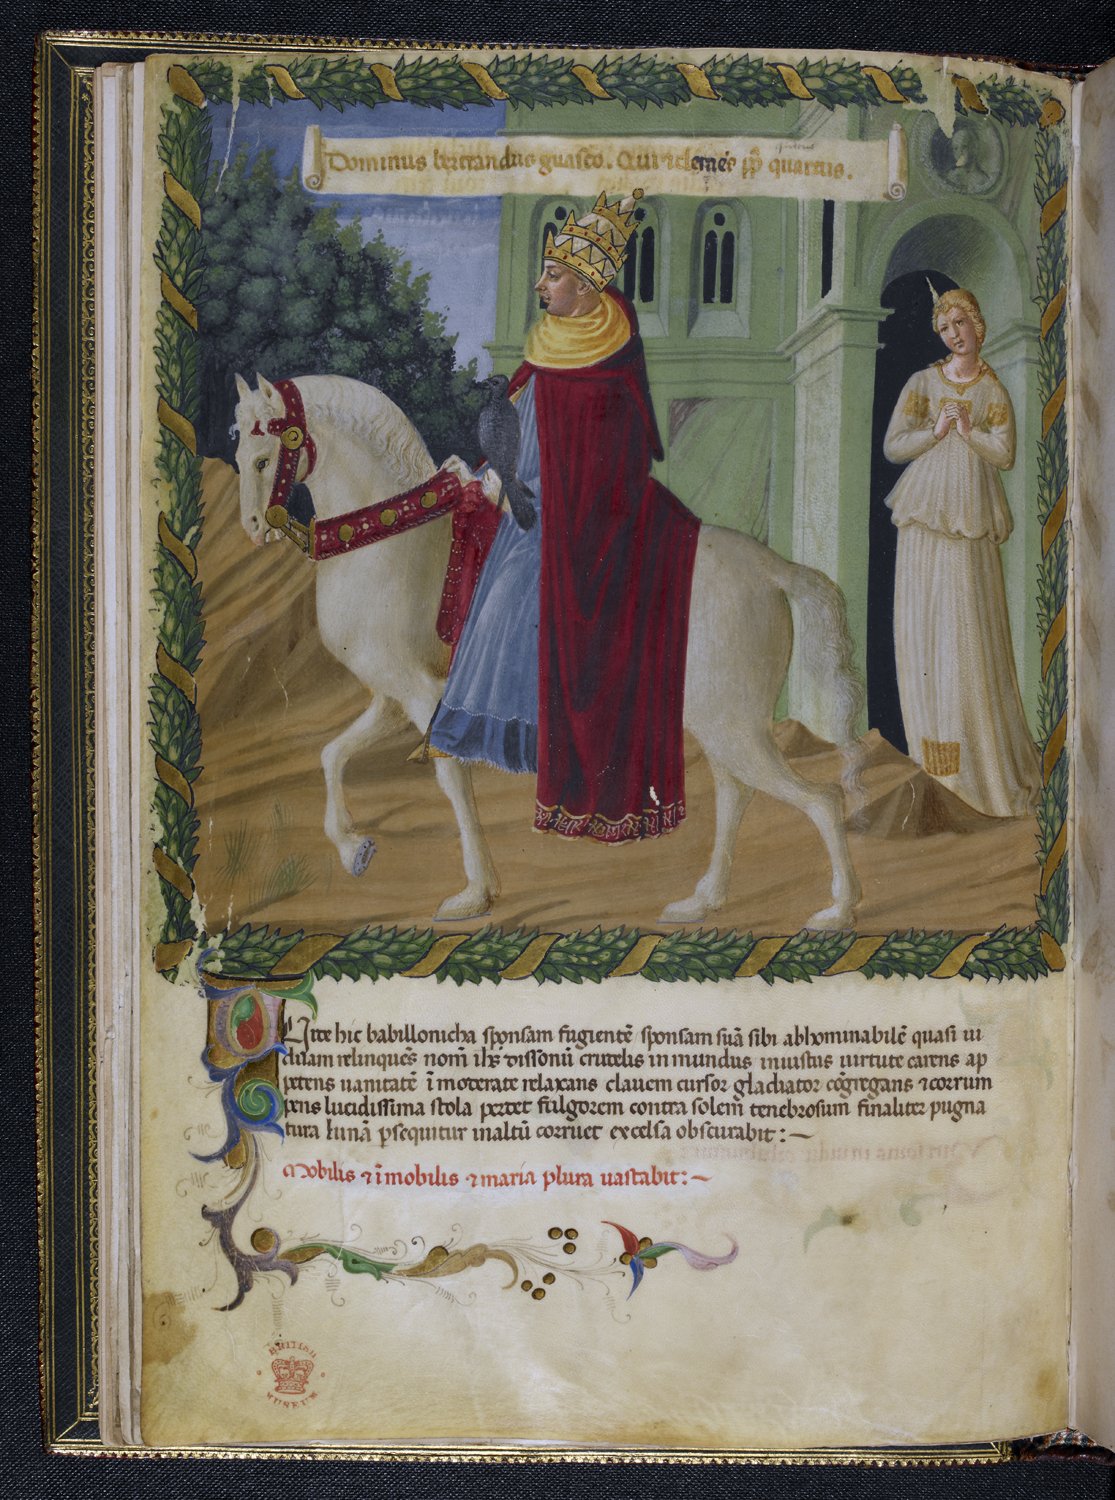 Dominus bertrandus guasco. Qui ⁊ clemēs pp̄ quartus.
Vite hic babillonicha sponsam fugientē sponsam suā sibi abhominabilē quasi ui
duam relinquēs nom̄ ih̄s dissonū crudelis inmundus iniustus uirtute carens ap
petens uanitatē īmoderate relaxans clauem cursor gladiator cōgregans ⁊ corrum
pens lucidissima stola perdet fulgorem contra solem tenebrosum finaliter pugna
tura lunā psequitur inaltū corruet excelsa obscurabit:~
Mobilis ⁊ īmobilis ⁊ maria plura uastabit:~
BRITISH
MUSEUM